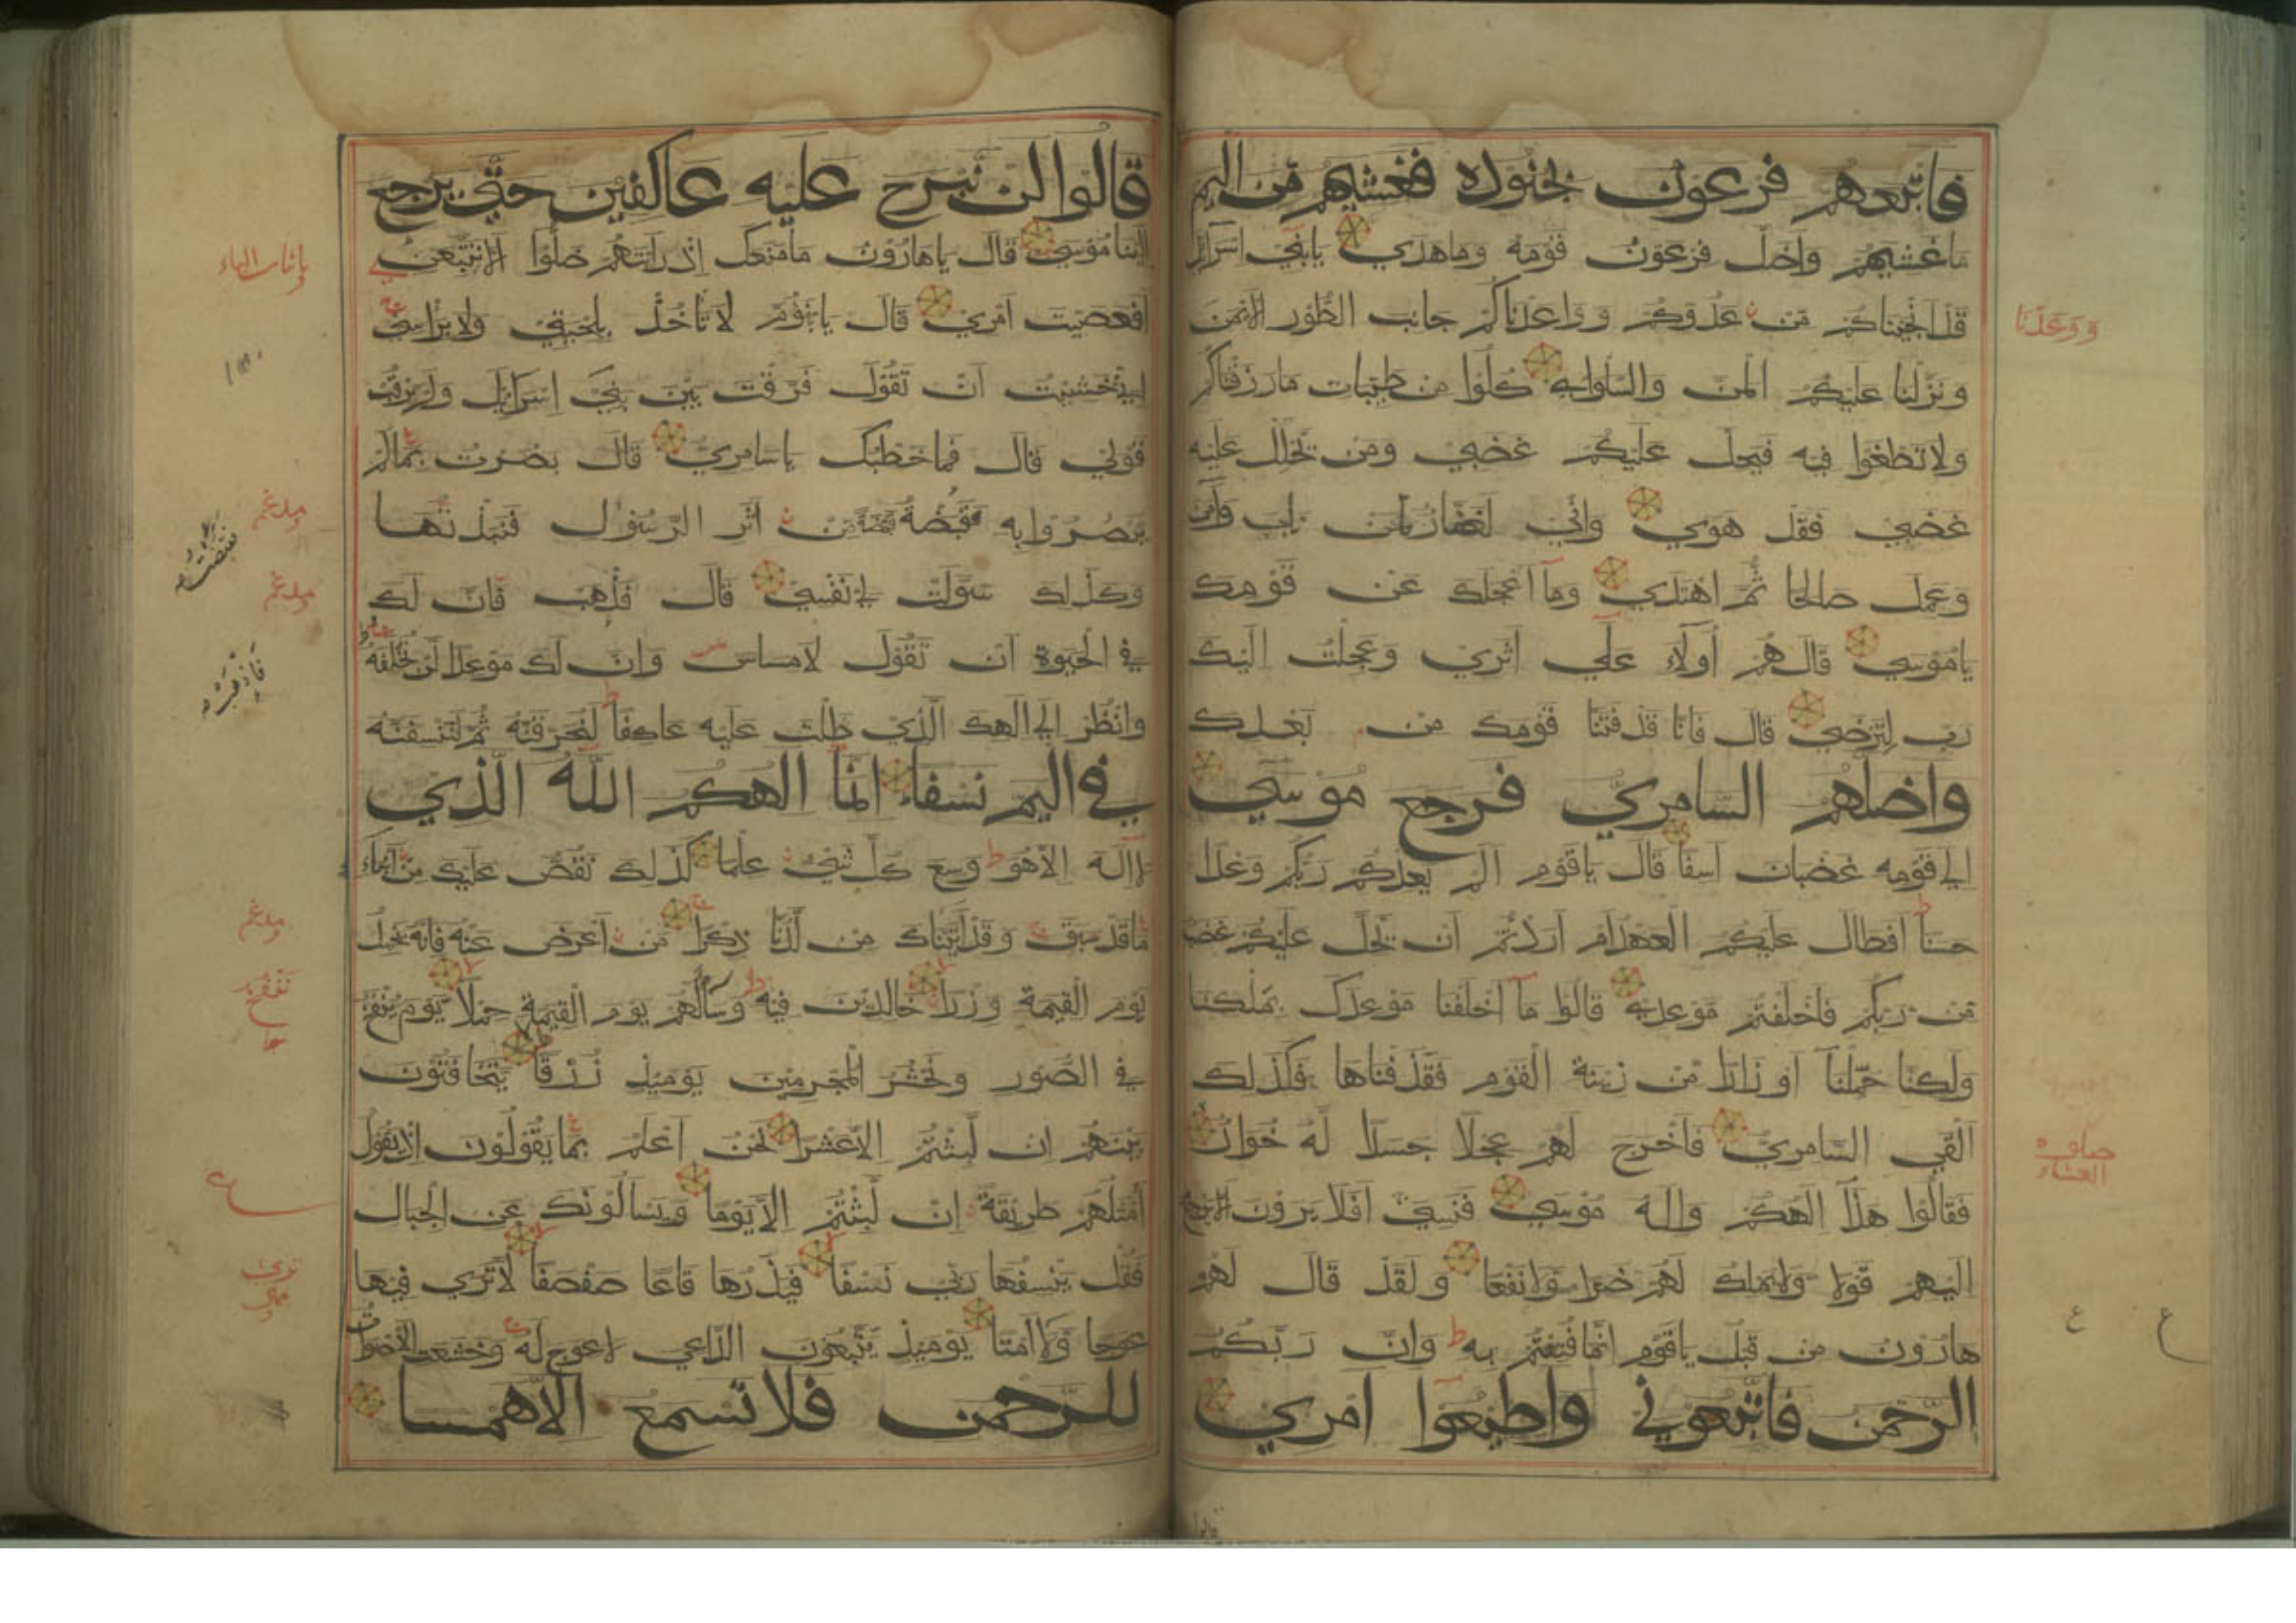 فاتبعهم فرعون بجنوده فغشيهم من اليم
ما غشيهم واضل فرعون قومه وما هدي يا بني اسرائل
قد انجيناكم من عدوكم وواعدناكم جانب الطور الايمن
ووعدنا
ونزلنا عليكم المن والسلوي كلوا من طيبات ما رزقناكم
ولا تطغوا فيه فيحل عليكم غضبي ومن يحلل عليه
غضبي فقد هوي واني لغفار لمن تاب وآمن
وعمل صالحا ثم اهتدي وما اعجلك عن قومك
يا موسي قال هم أولاء علي اثري وعجلت اليك
رب لترضي قال فانا قد فتنا قومك من بعدك
واضلهم السامري فرجع موسي
الي قومه غضبان اسفا قال يا قوم الم يعدكم ربكم وعدا
حسنا افطال عليكم العهد ام اردتم ان يحل عليكم غضب
من ربكم فاخلفتم موعدي قالوا ما اخلفنا موعدك بملكنا
ولكنا حملنا اوزارا من زينة القوم فقذفناها فكذلك
القي السامري فاخرج لهم عجلا جسدا له خوار
صلوة
العشاء
فقالوا هذا الهكم واله موسي فنسي افلا يرون الا يرجع
اليهم قولا ولا يملك لهم ضرا ولا نفعا ولقد قال لهم
هارون من قبل يا قوم انما فتنتم به وان ربكم
ع
ع
الرحمن فاتبعوني واطيعوا امري
قالوا
قالوا لن نبرح عليه عاكفين حتي يرجع
الينا موسي قال يا هارون ما منعك اذ رايتهم ضلوا الا تتبعن
باثبات الياء
افعصيت امري قال يا بنؤم لا تاخذ بلحيتي ولا براسي
اني خشيت ان تقول فرقت بين بني اسرائل ولم ترقب
قولي قال فما خطبك يا سامري قال بصرت بما لم
مدغم
يبصروا به فقبضت قبضة من اثر الرسول فنبذتها
وكذلك سولت لي نفسي قال فاذهب فان لك
مدغم
في الحيوة ان تقول لا مساس وان لك موعدا لن تخلفه
وانظر الي الهك الذي ظلت عليه عاكفا لنحرقنه ثم لننسفنه
في اليم نسفا انما الهكم الله الذي
لا اله الا هو وسع كل شيء علما كذلك نقص عليك من انباء
ما قد سبق وقد آتيناك من لدنا ذكرا من اعرض عنه فانه يحمل
مدغم
يوم القيمة وزرا خالدين فيه وساء لهم يوم القيمة حملا يوم ينفخ
في الصور ونحشر المجرمين يومئذ زرقا يتخافتون
بينهم ان لبثتم الا عشرا نحن اعلم بما يقولون اذ يقول
امثلهم طريقة ان لبثتم الا يوما ويسالونك عن الجبال
ع
فقل ينسفها ربي نسفا فيذرها قاعا صفصفا لا تري فيها
عوجا ولا امتا يومئذ يتبعون الداعي لا عوج له وخشعت الاصوات
للرحمن فلا تسمع الا همسا